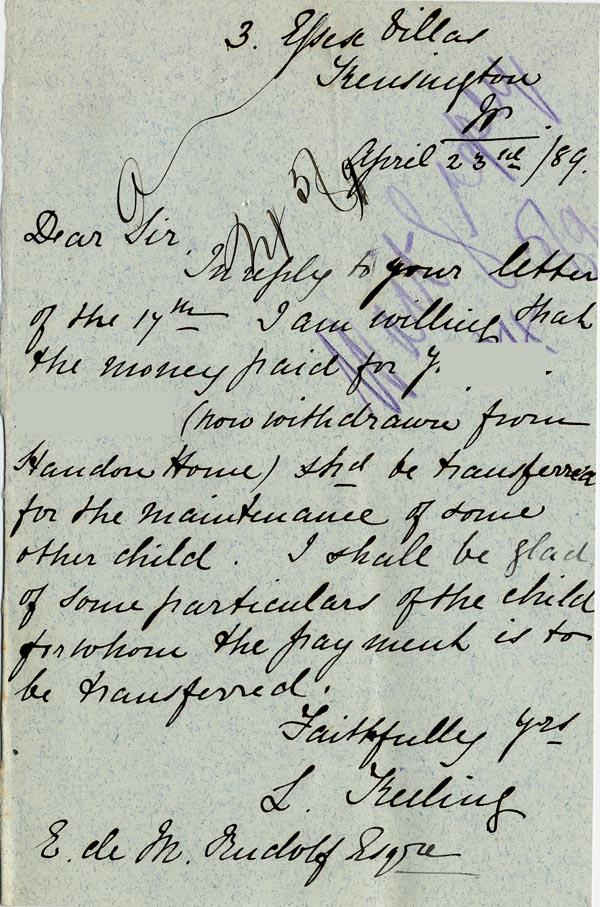 3. Essex Villas
Kensington
W.
April 23rd /89.
Dear Sir,
In reply to your letter
of the 17th I am willing that
the money paid for
(now withdrawn from
Handon Home) shd be transferred
for the maintenance of some
other child. I shall be glad
of some particulars of the child
for whom the payment is to
be transferred.
Faithfully yrs
L. Keeling
E. de M. Rudolf Esqre